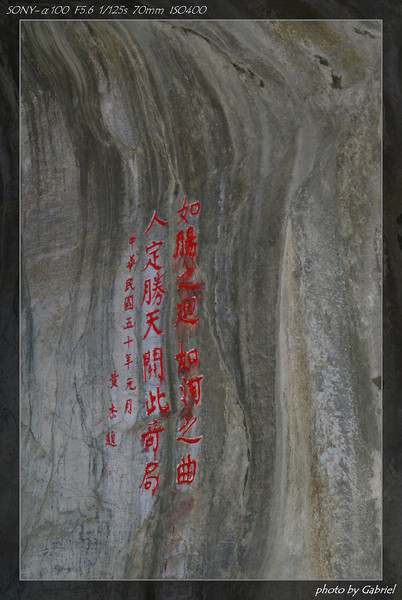 SONY-α100 F5.6 1/125s 70mm ISO400
如腸之迴如河之曲
人定勝天開此奇局
中華民國五十年元月
黄杰題
photo by Gabriel